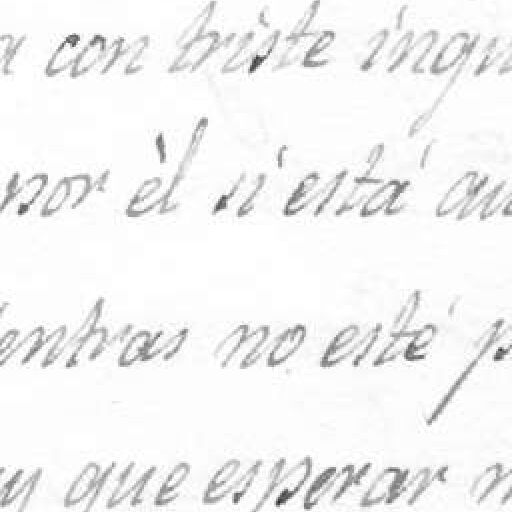 a con triste inqu
por èl si está au
ientras no esté p
ay que esperar n